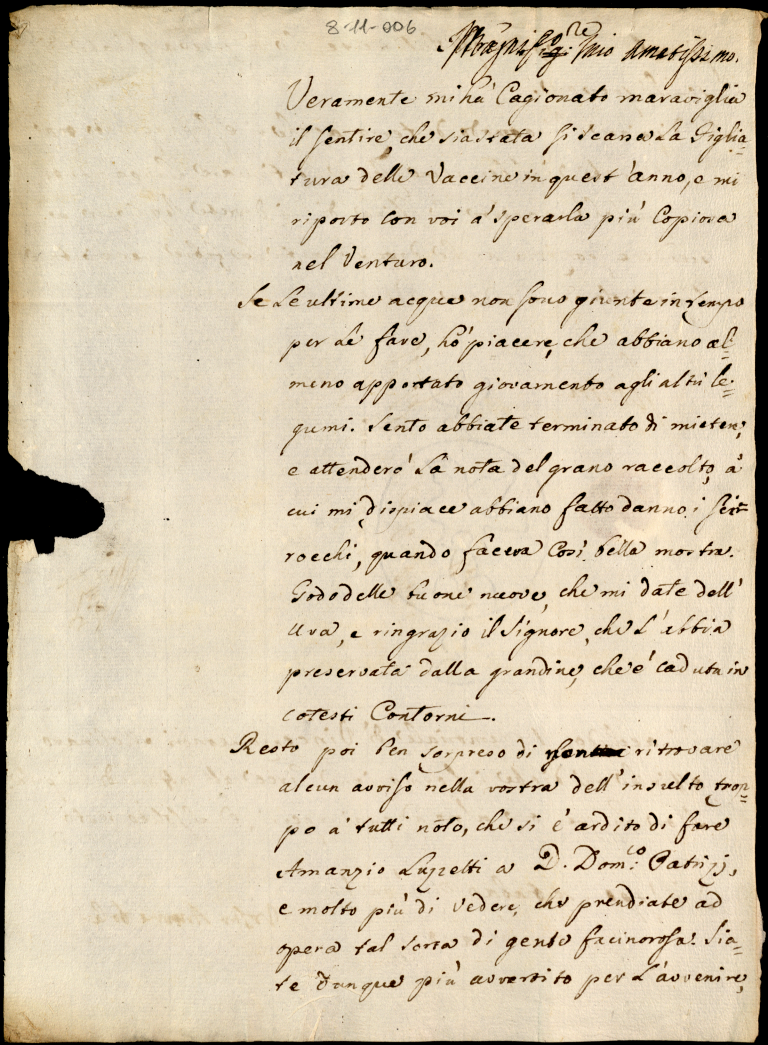 8-11-006
Sig.re mio amatissimo.
Veramente mi hà cagionato maraviglia
il sentire, che sia stata sì scarsa la figlia=
tura delle Vaccine in quest'anno, e mi
riporto con voi a' sperarla più copiosa
nel Venturo.
Se le ultime acque non sono giunte in tempo
per le fave, hò piacere, che abbiano al=
meno apportato giovamento agli altri le=
gumi. Sento abbiate terminato di mietere,
e attenderò la nota del grano raccolto, à
cui mi dispiace abbiano fatto danno i sci=
rocchi, quando faceva così bella mostra.
Godo delle buone nuove, che mi date dell'
Uva, e ringrazio il Signore, che l'abbia
preservata dalla grandine, che è caduta in
cotesti Contorni.
Resto poi ben sorpreso di ritrovare
alcun avviso nella vostra dell'insulto trop=
po a' tutti noto, che si è ardito di fare
Amanzio Luzzetti a D. Dom.co Patrizj,
e molto più di vedere, che prendiate ad
opera tal sorta di gente facinorosa. Sia=
te dunque più avvertito per l'avvenire,